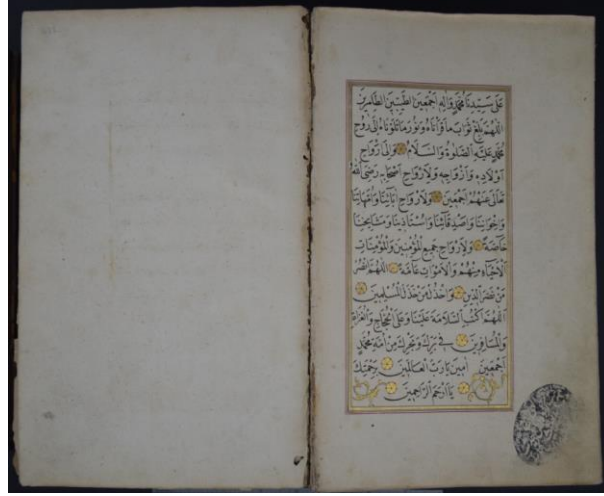 على سيدنا محمد واله اجمعين الطيبين الطاهرين
اللهم بلغ ثواب ما قرأناه ونور ما تلوناه الى روح
محمد عليه الصلوة والسلام والى ارواح
اولاده وازواجه ولارواح اصحابه رضى الله
تعالى عنهم اجمعين ولارواح ابائنا وامهاتنا
واخواننا واصدقائنا واستاذينا ومشايخنا
خاصة ولارواح جميع المؤمنين والمؤمنات
الاحياء منهم والاموات عامة اللهم انصر
من نصر الدين واخذل من خذل المسلمين
اللهم اكتب السلامة علينا وعلى الحجاج والغزاة
والمسافرين فى برك وبحرك من امة محمد
اجمعين امين يا رب العالمين برحمتك
يا ارحم الراحمين